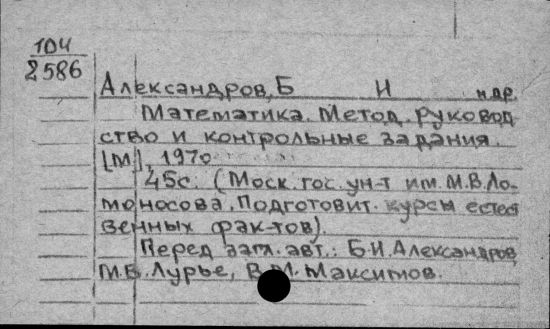 104
2586
Александров, Б И и др.
Математика. Метод. руковод
ство и контрольные задания.
[М], 1970
45с. (Моск. гос. ун-т им. М.В.Ло-
моносова. Подготовит. курсы естест
венных фак-тов).
Перед загл. авт.: Б.И.Александров,
М.В. Лурье, В.М. Максимов.